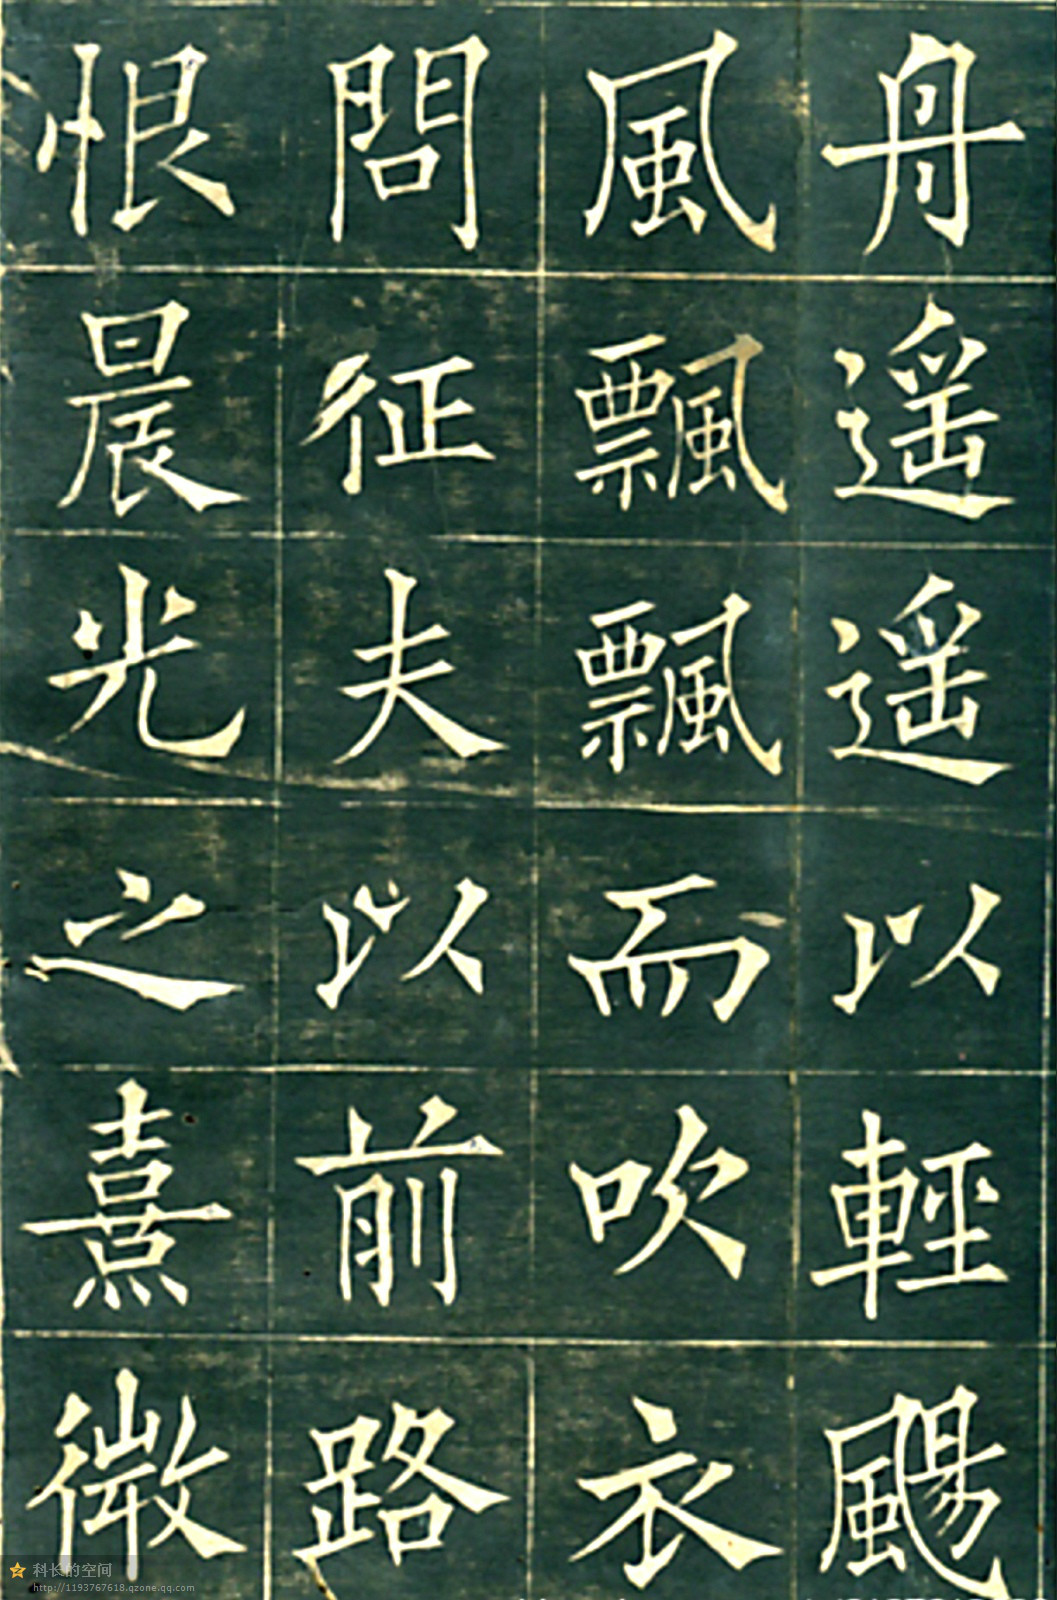 舟遥遥以輕颺
風飄飄而吹衣
問征夫以前路
恨晨光之熹微
科长的空间
http://1193767618.qzone.qq.com